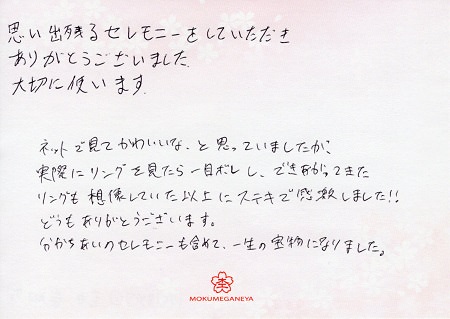 思い出残るセレモニーをしていただき
ありがとうございました.
大切に使います.
ネットで見てかわいいな、と思っていましたが、
実際にリングを見たら一目ボレし、できあがってきた
リングも想像していた以上にステキで感激しました!!
どうもありがとうございます。
分かちあいのセレモニーも含めて、一生の宝物になりました。
MOKUMEGANEYA